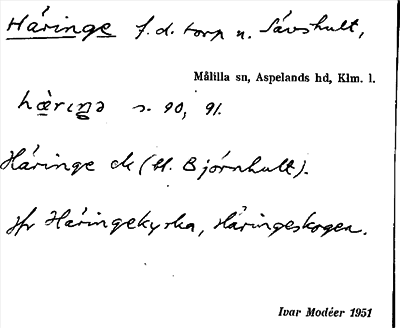 Häringe f.d. torp u. Sävshult,
Målilla sn, Aspelands hd, Klm. l.
hæ̀rıŋə s. 90, 91.
Häringe ek (bl. Björnhult).
Jfr Häringekyrka, Häringeskogen.
Ivar Modéer 1951